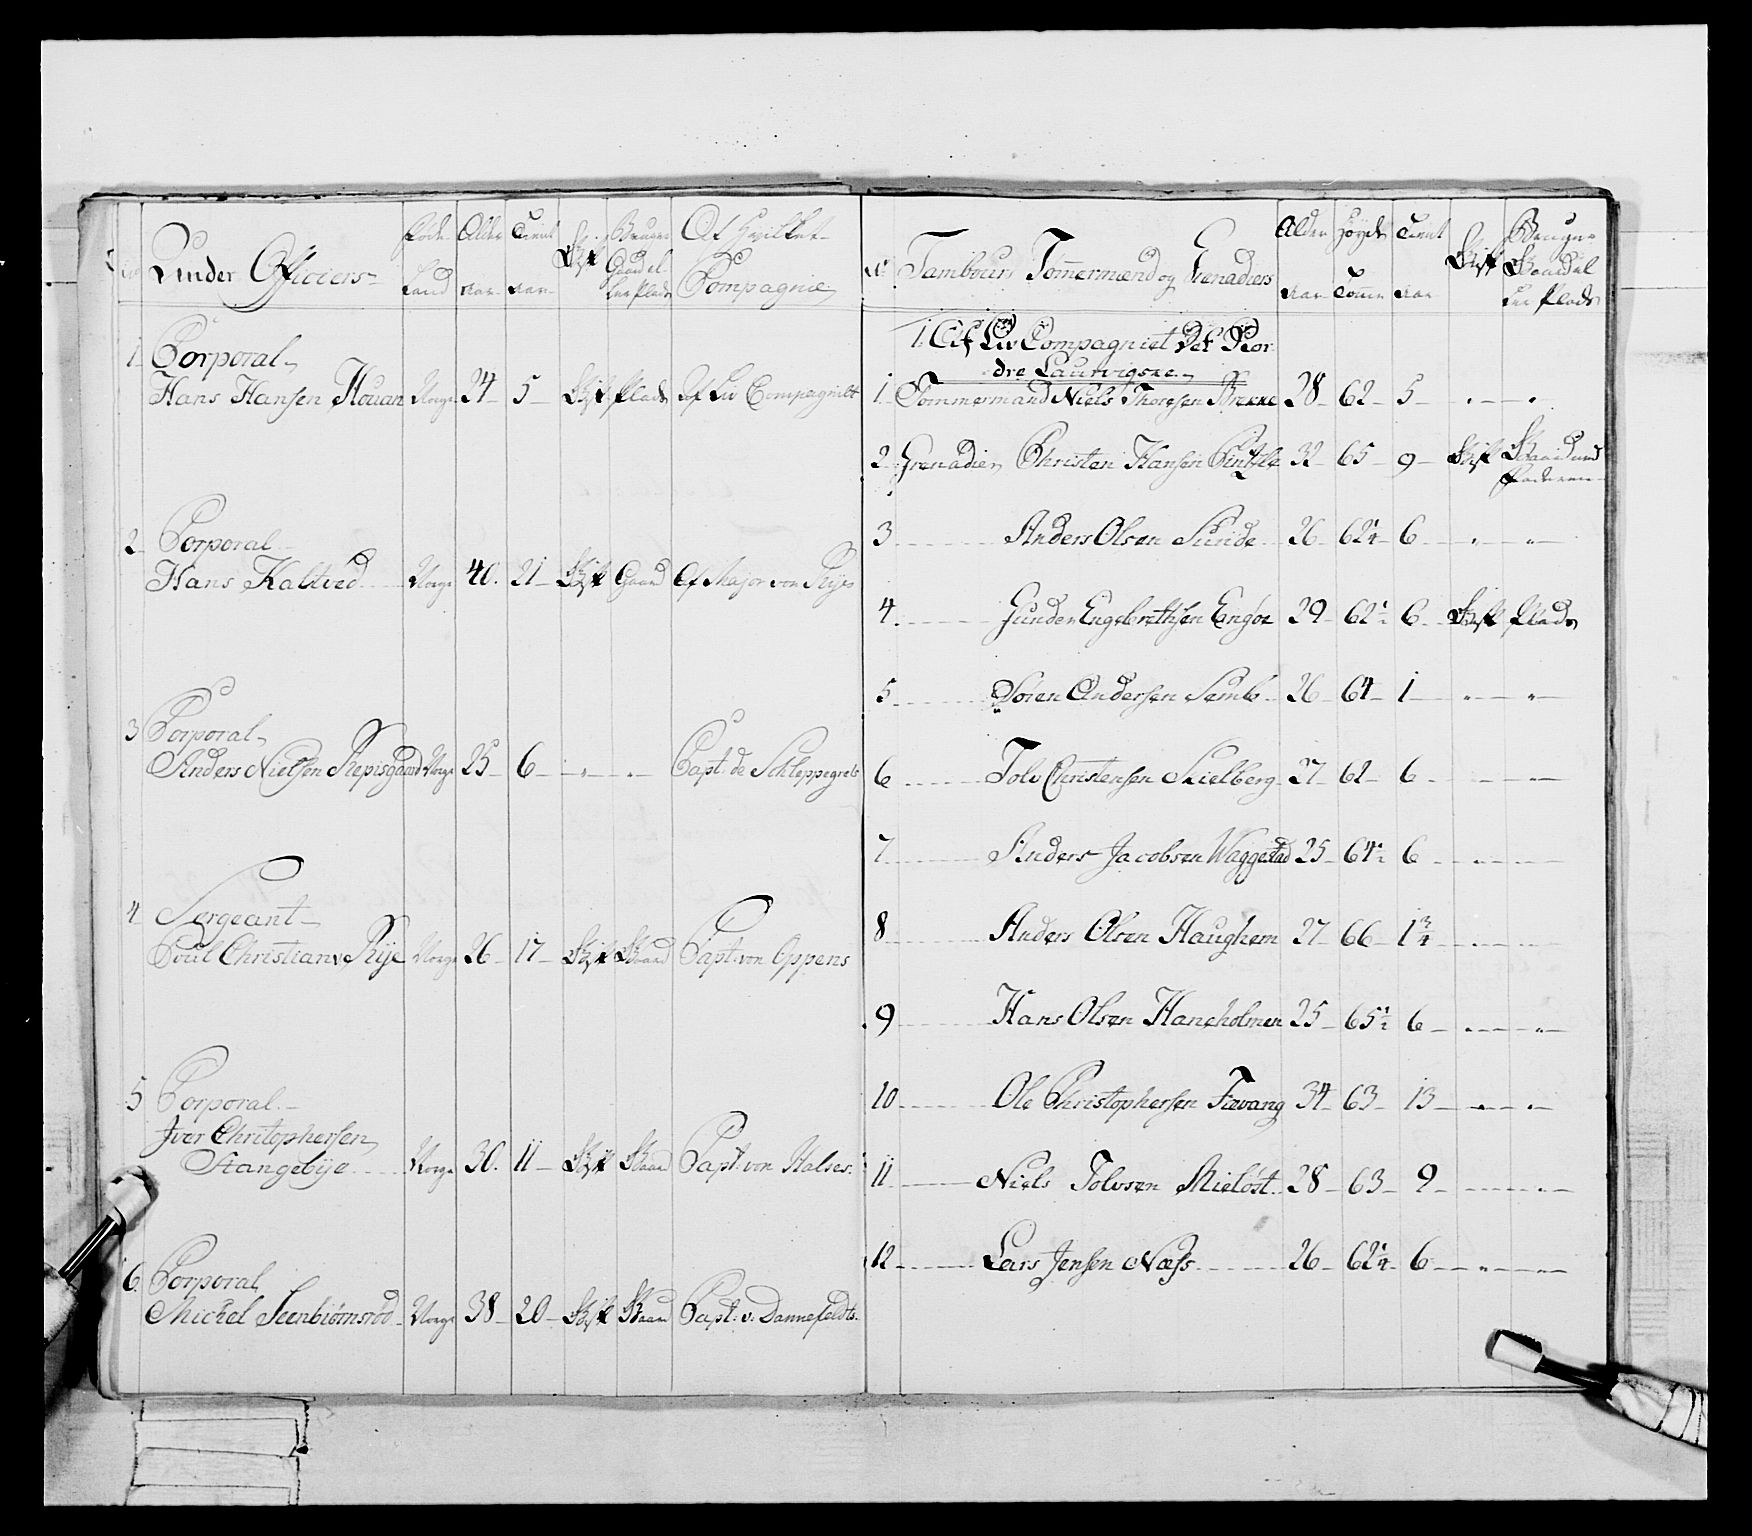 Under Officiers
Føde Land
Alder aar
Tient aar
Gift
Bruger Gaard eller Plads
Af hvilket Compagnie
1 Corporal
Hans Hansen Houan Norge 24 5 Gift Plads Af Liv Compagniet
2 Corporal
Hans Kaltved Norge 40. 21 Gift Gaard Af Major von Rÿe
3 Corporal
Anders Nielsen Repisgaard Norge 25 6 " " Capt: de Schleppegrels
4 Sergeant
Poul Christian v Rÿe Norge 26 17 Gift Gaard Capt: von Oppens
5 Corporal
Iver Chritophersen
Stangebÿe Norge 30. 11 Gift Gaard Capt: von Halses:
6. Corporal
Michel Steenbiørnsrød Norge 38 20 Gift Gaard Capt: v: Dannefeldts.
No Tambours Tømmermænd og Grenadiers
Alder aar
Høyde Tomer
Tient aar
Gift
Bruger Gaard eller Plads
1 Af Liv Compagniet Det Nor-
dre Laurvigske
1 Tømmermand Niels Thoresen Brekke 28 62 5 " "
2 Grenadier Christen Hansen 32 65 9 Gift Gaard med Faderen
3 Anders Olsen Sunde 26 62¼ 6 " "
4 Gunder Engebrethsen Engøe 29 62½ 6 Gift Plads
5 Søren Andersen Semb 26 64 1 " "
6 Tolv Christensen Skielberg 27 62 6 " "
7 Anders Jacobsen Waggestad 25 64½ 6 " "
8 Anders Olsen Haughem 27 66 1¾ " "
9 Hans Olsen Haneholmen 25 65½ 6 " "
10 Ole Christophersen Fævang 34 63 13 " "
11 Niels Tolvsen Mieløst 28 63 9 " "
12 Lars Jensen Næss 26 62¼ 6 " "